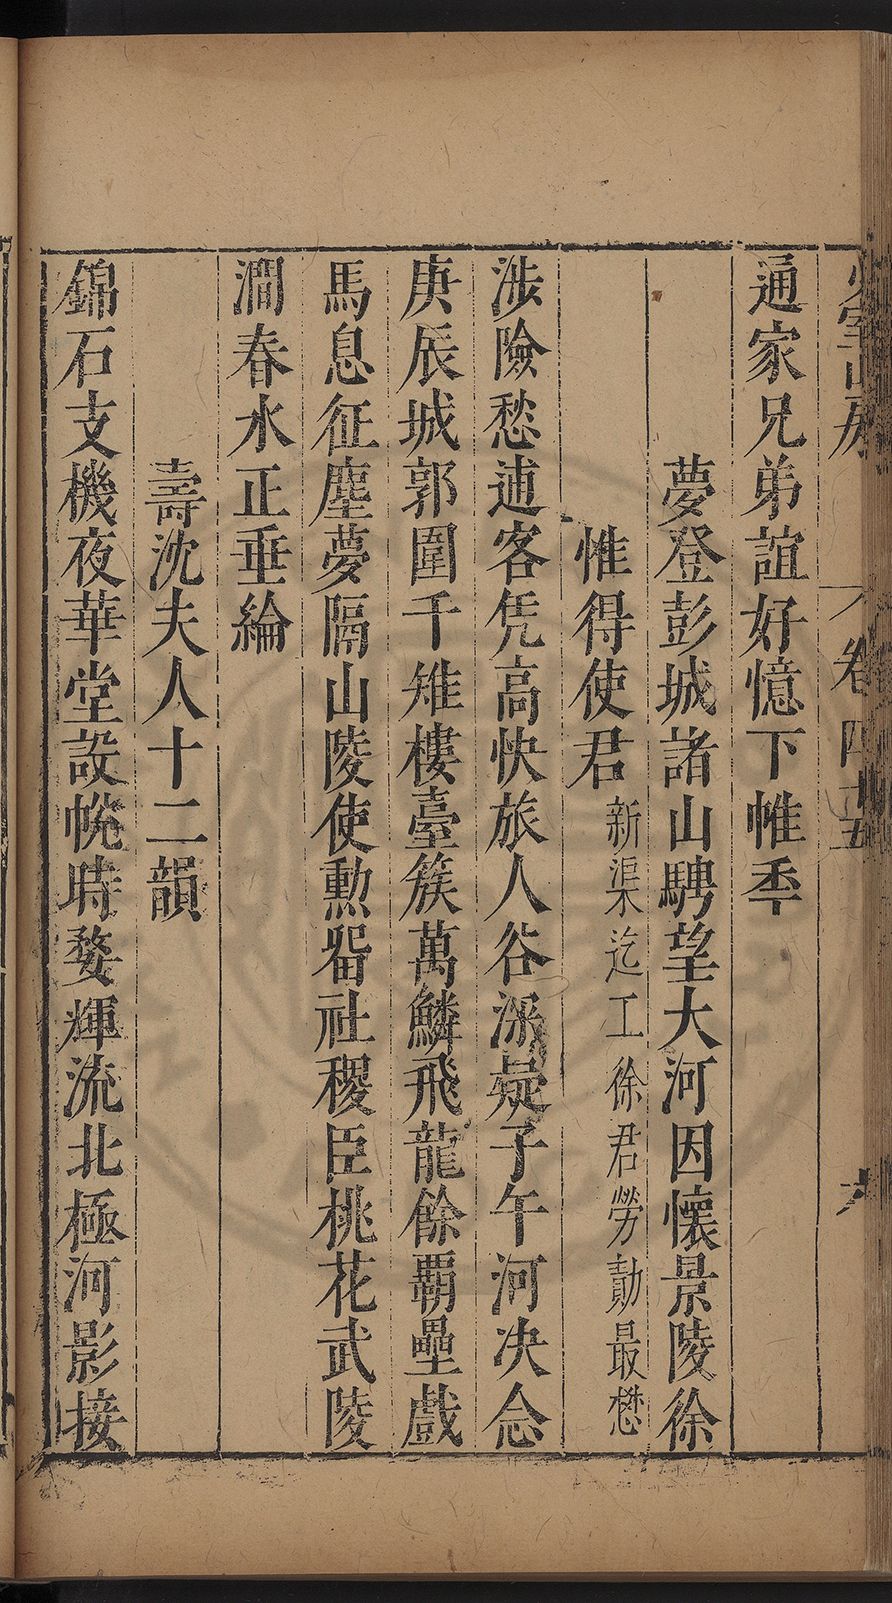 少室山房 卷四十五 六
通家兄弟誼好憶下帷秊
夢登彭城諸山騁望大河因懷景陵徐
惟得使君新渠迄工徐君勞勩最懋
涉險愁逋客凭高快旅人谷深疑子午河决念
庚辰城郭圍千雉樓臺簇萬鱗飛龍餘覇壘戲
馬息征塵夢隔山陵使勲畱社稷臣桃花武陵
澗春水正垂綸
壽沈夫人十二韻
錦石支機夜華堂設帨時婺輝流北極河影接